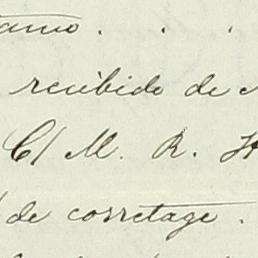 recibido de
C/ M. R. H
de corretage.